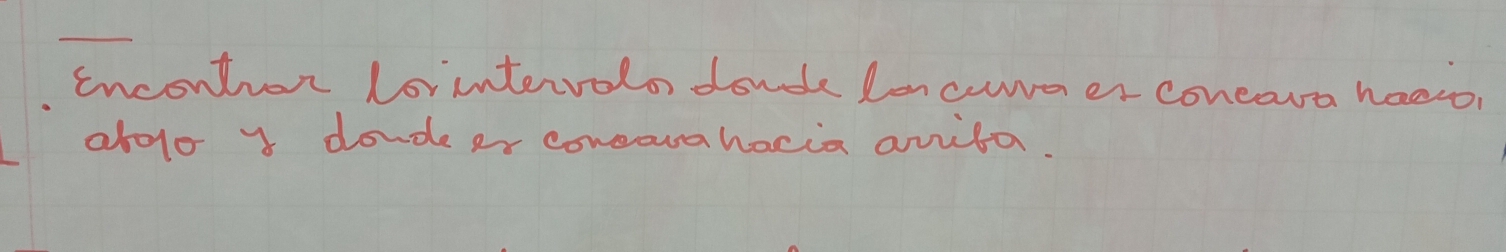 Encontrar los intervalos donde la curva es concava hacia
abajo y donde es concava hacia arriba.